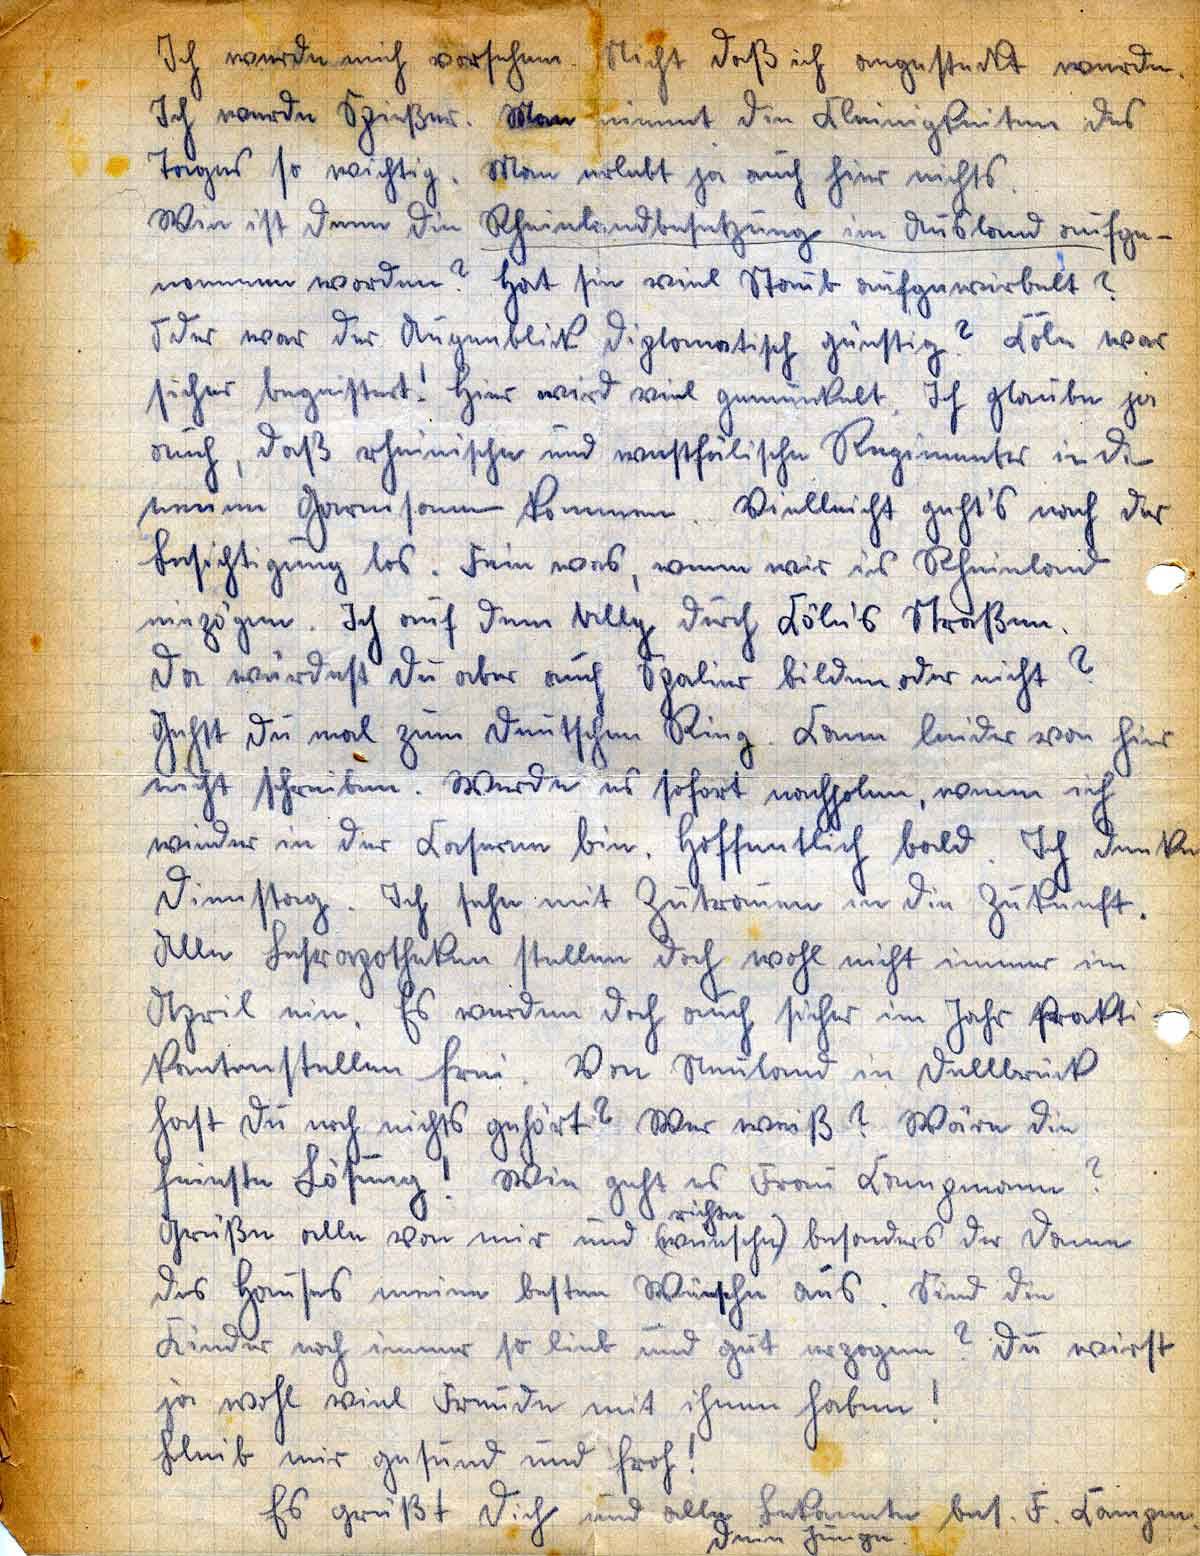 Ich werde mich vorsehen. Nicht daß ich angesteckt werde.
Ich werde Spießer. Man nimmt die Kleinigkeiten des
Tages so wichtig. Man erlebt ja auch hier nichts.
Wie ist denn die Rheinlandbesetzung im Ausland aufge-
nommen worden? Hat sie viel Staub aufgewirbelt?
Oder war der Augenblick diplomatisch günstig? Köln war
sicher begeistert! Hier wird viel gemunkelt. Ich glaube ja
auch, daß rheinische und westfälische Regimenter in die
neuen Garnisonen kommen. Vielleicht geht's nach der
Besichtigung los. Fein was, wenn wir ins Rheinland
einzögen. Ich auf dem durch Köln's Straßen.
Da würdest Du aber auch Spalier bilden oder nicht?
Gehst Du mal zum Deutschen Ring. Kann leider von hier
nicht schreiben. Werde es sofort nachholen, wenn ich
wieder in der Kaserne bin. Hoffentlich bald. Ich denke
Dienstag. Ich sehe mit Zutrauen in die Zukunft.
Alle Lehrapotheken stellen doch wohl nicht immer im
April ein. Es werden doch auch sicher im Jahr Prakti-
kantenstellen frei. Von Neuland in Dellbrück
hast Du noch nichts gehört? Wer weiß? Wäre die
feinste Lösung! Wie geht es Frau Kampmann?
richte
Grüße alle von mir und (wünsche) besonders der Dame
des Hauses meine besten Wünsche aus. Sind die
Kinder noch immer so lieb und gut erzogen? Du wirst
ja wohl viel Freude mit ihnen haben!
Bleib mir gesund und froh!
Es grüßt Dich und alle Bekannte bes. F. Kampm.
Dein Junge.